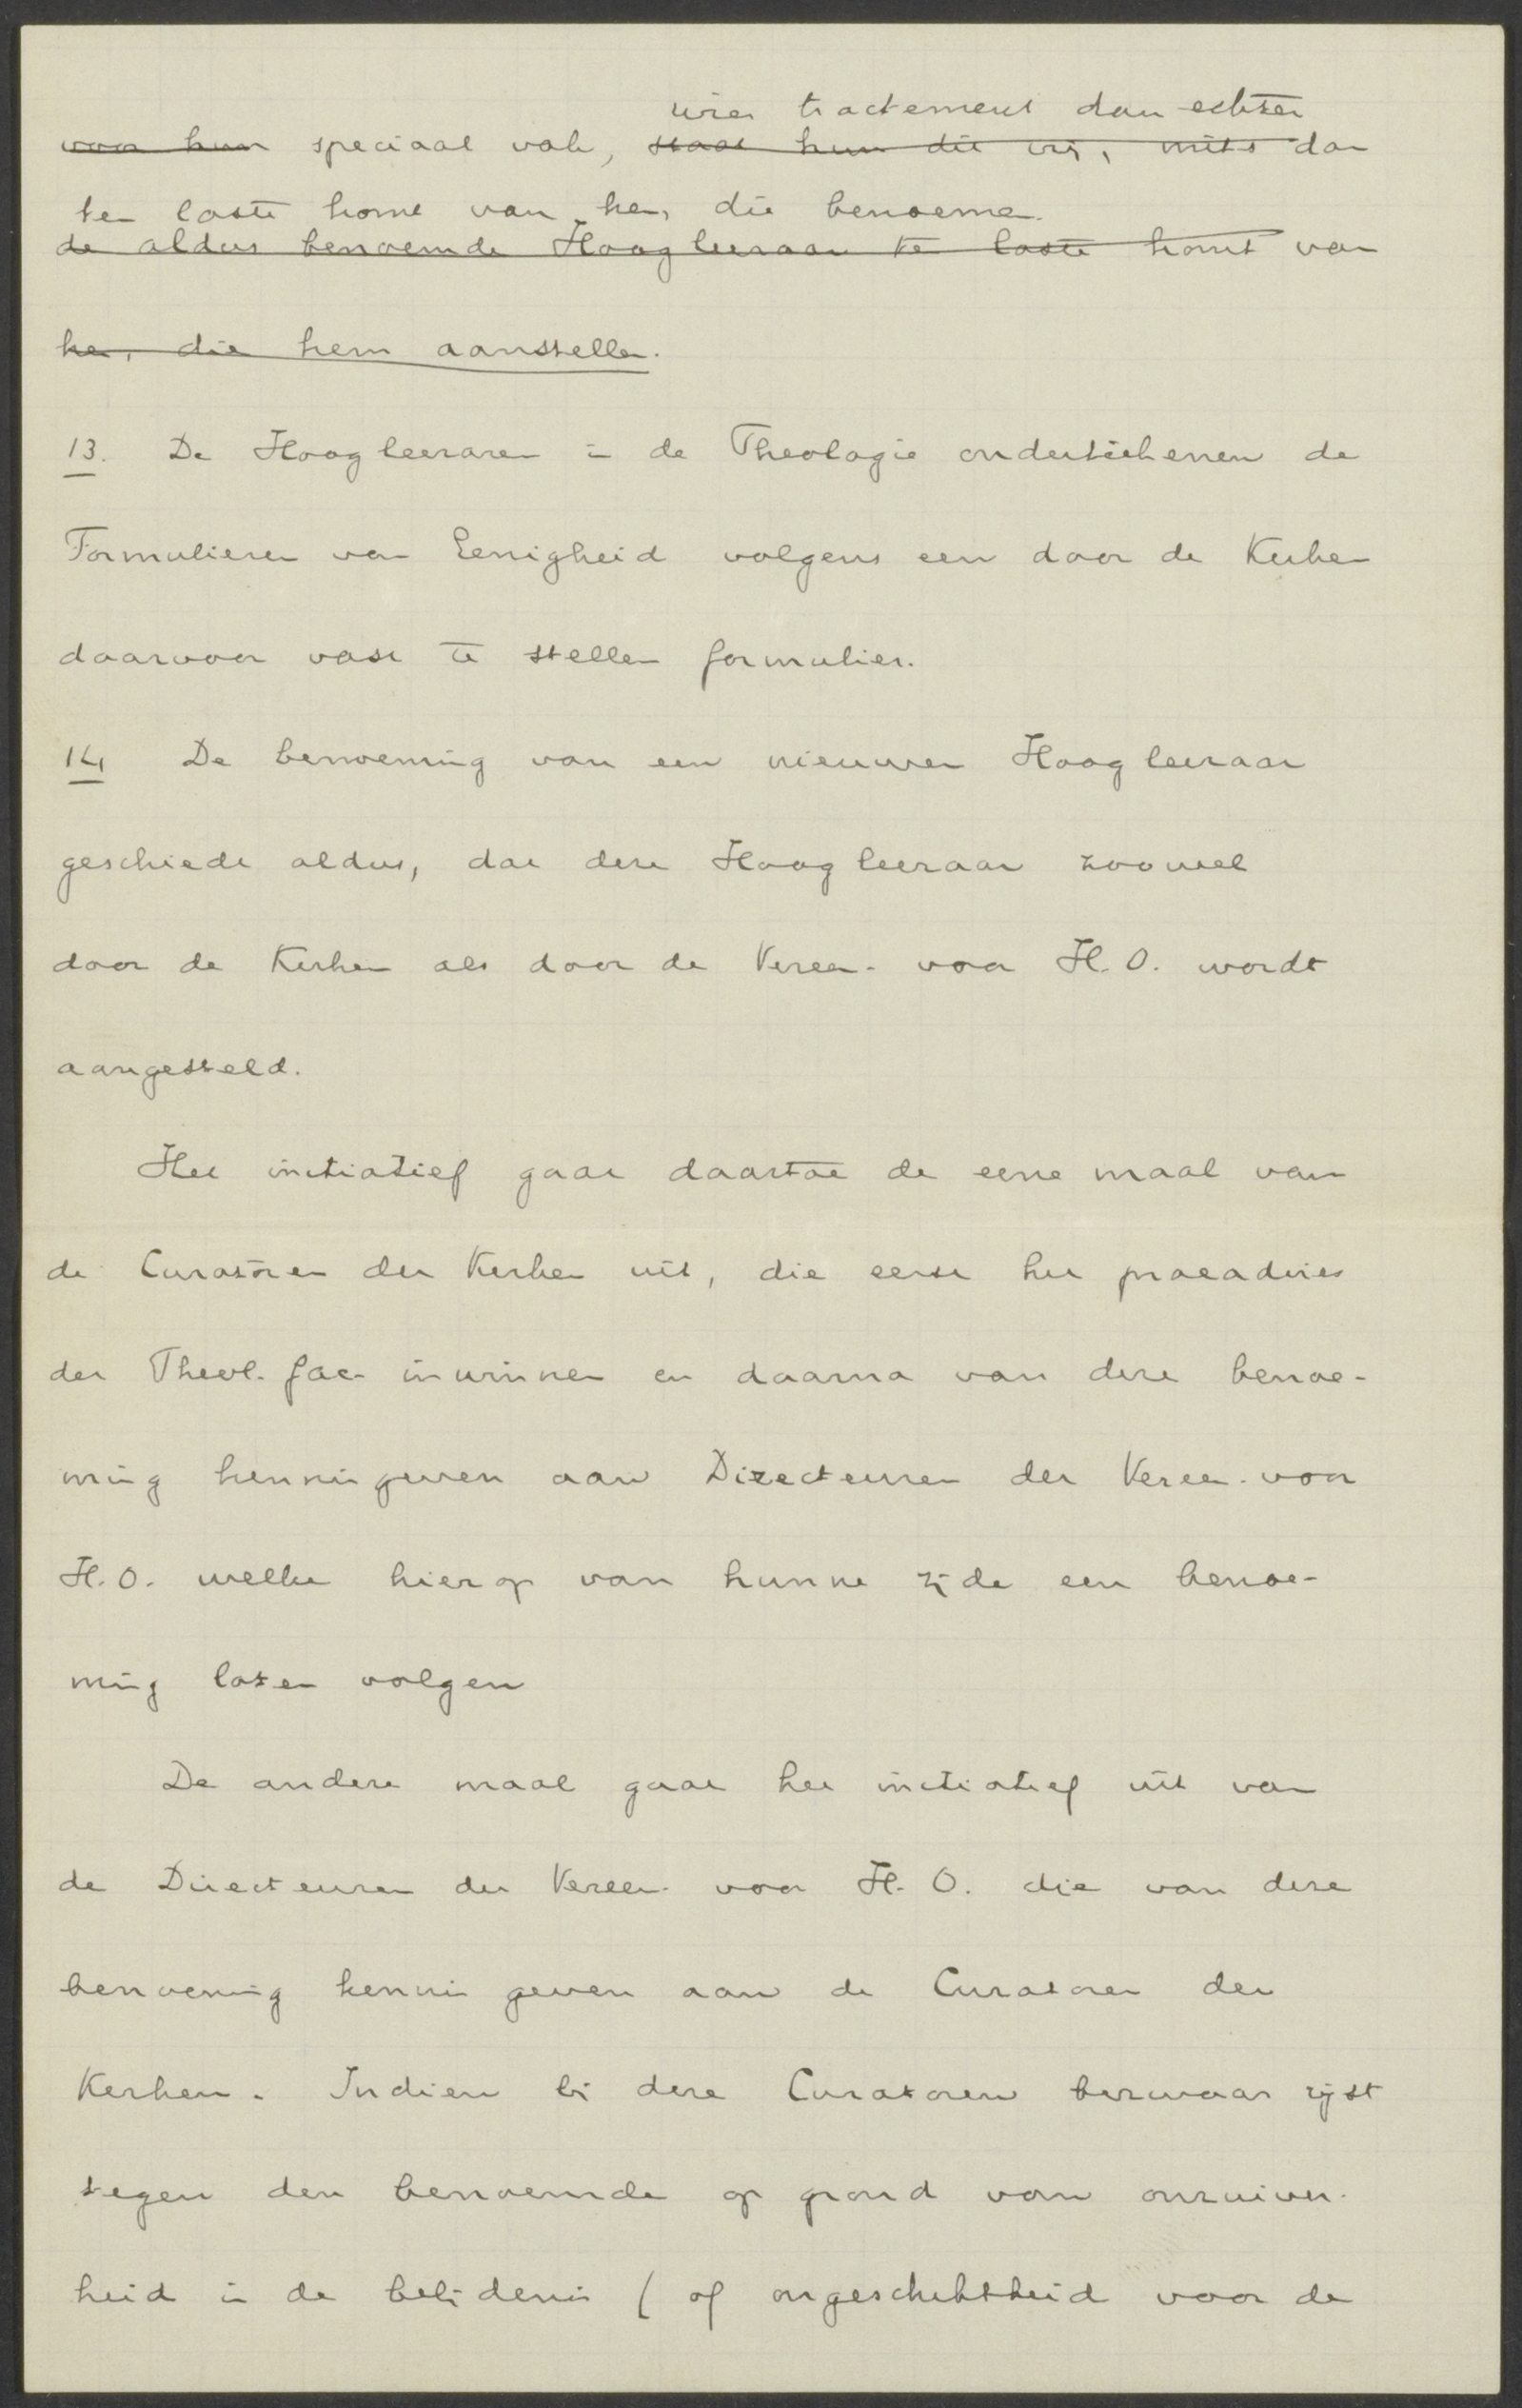 wier tractement dan echter
voor hun speciaal vak, staat hun dit vrij, mits dan
ten laste komt van hen, die benoemen.
de aldus benoemde Hoogleeraar te laste komt van
hen, die hem aanstellen.
13. De Hoogleeraren in de Theologie onderteekenen de
Formulieren van Eenigheid volgens een door de Kerken
daarvoor vast te stellen formulier.
14 De benoeming van een nieuwen Hoogleeraar
geschiede aldus, dat deze Hoogleeraar zoowel
door de Kerken als door de Vereen. voor H.O. wordt
aangesteld.
Het initiatief gaat daartoe de eene maal van
de Curatoren der Kerken uit, die eerst het praeadvies
der Theol. fac. inwinnen en daarna van deze benoe-
ming kennis geven aan Directeuren der Vereen. voor
H.O. welke hierop van hunne zijde een benoe-
ming laten volgen
De andere maal gaat het initiatief uit van
de Directeuren der Vereen. voor H.O. die van deze
benoeming kennis geven aan de Curatoren der
Kerken. Indien bij deze Curatoren bezwaar rijst
tegen den benoemde op grond van onzuiver-
heid in de belijdenis (of ongeschiktheid voor de